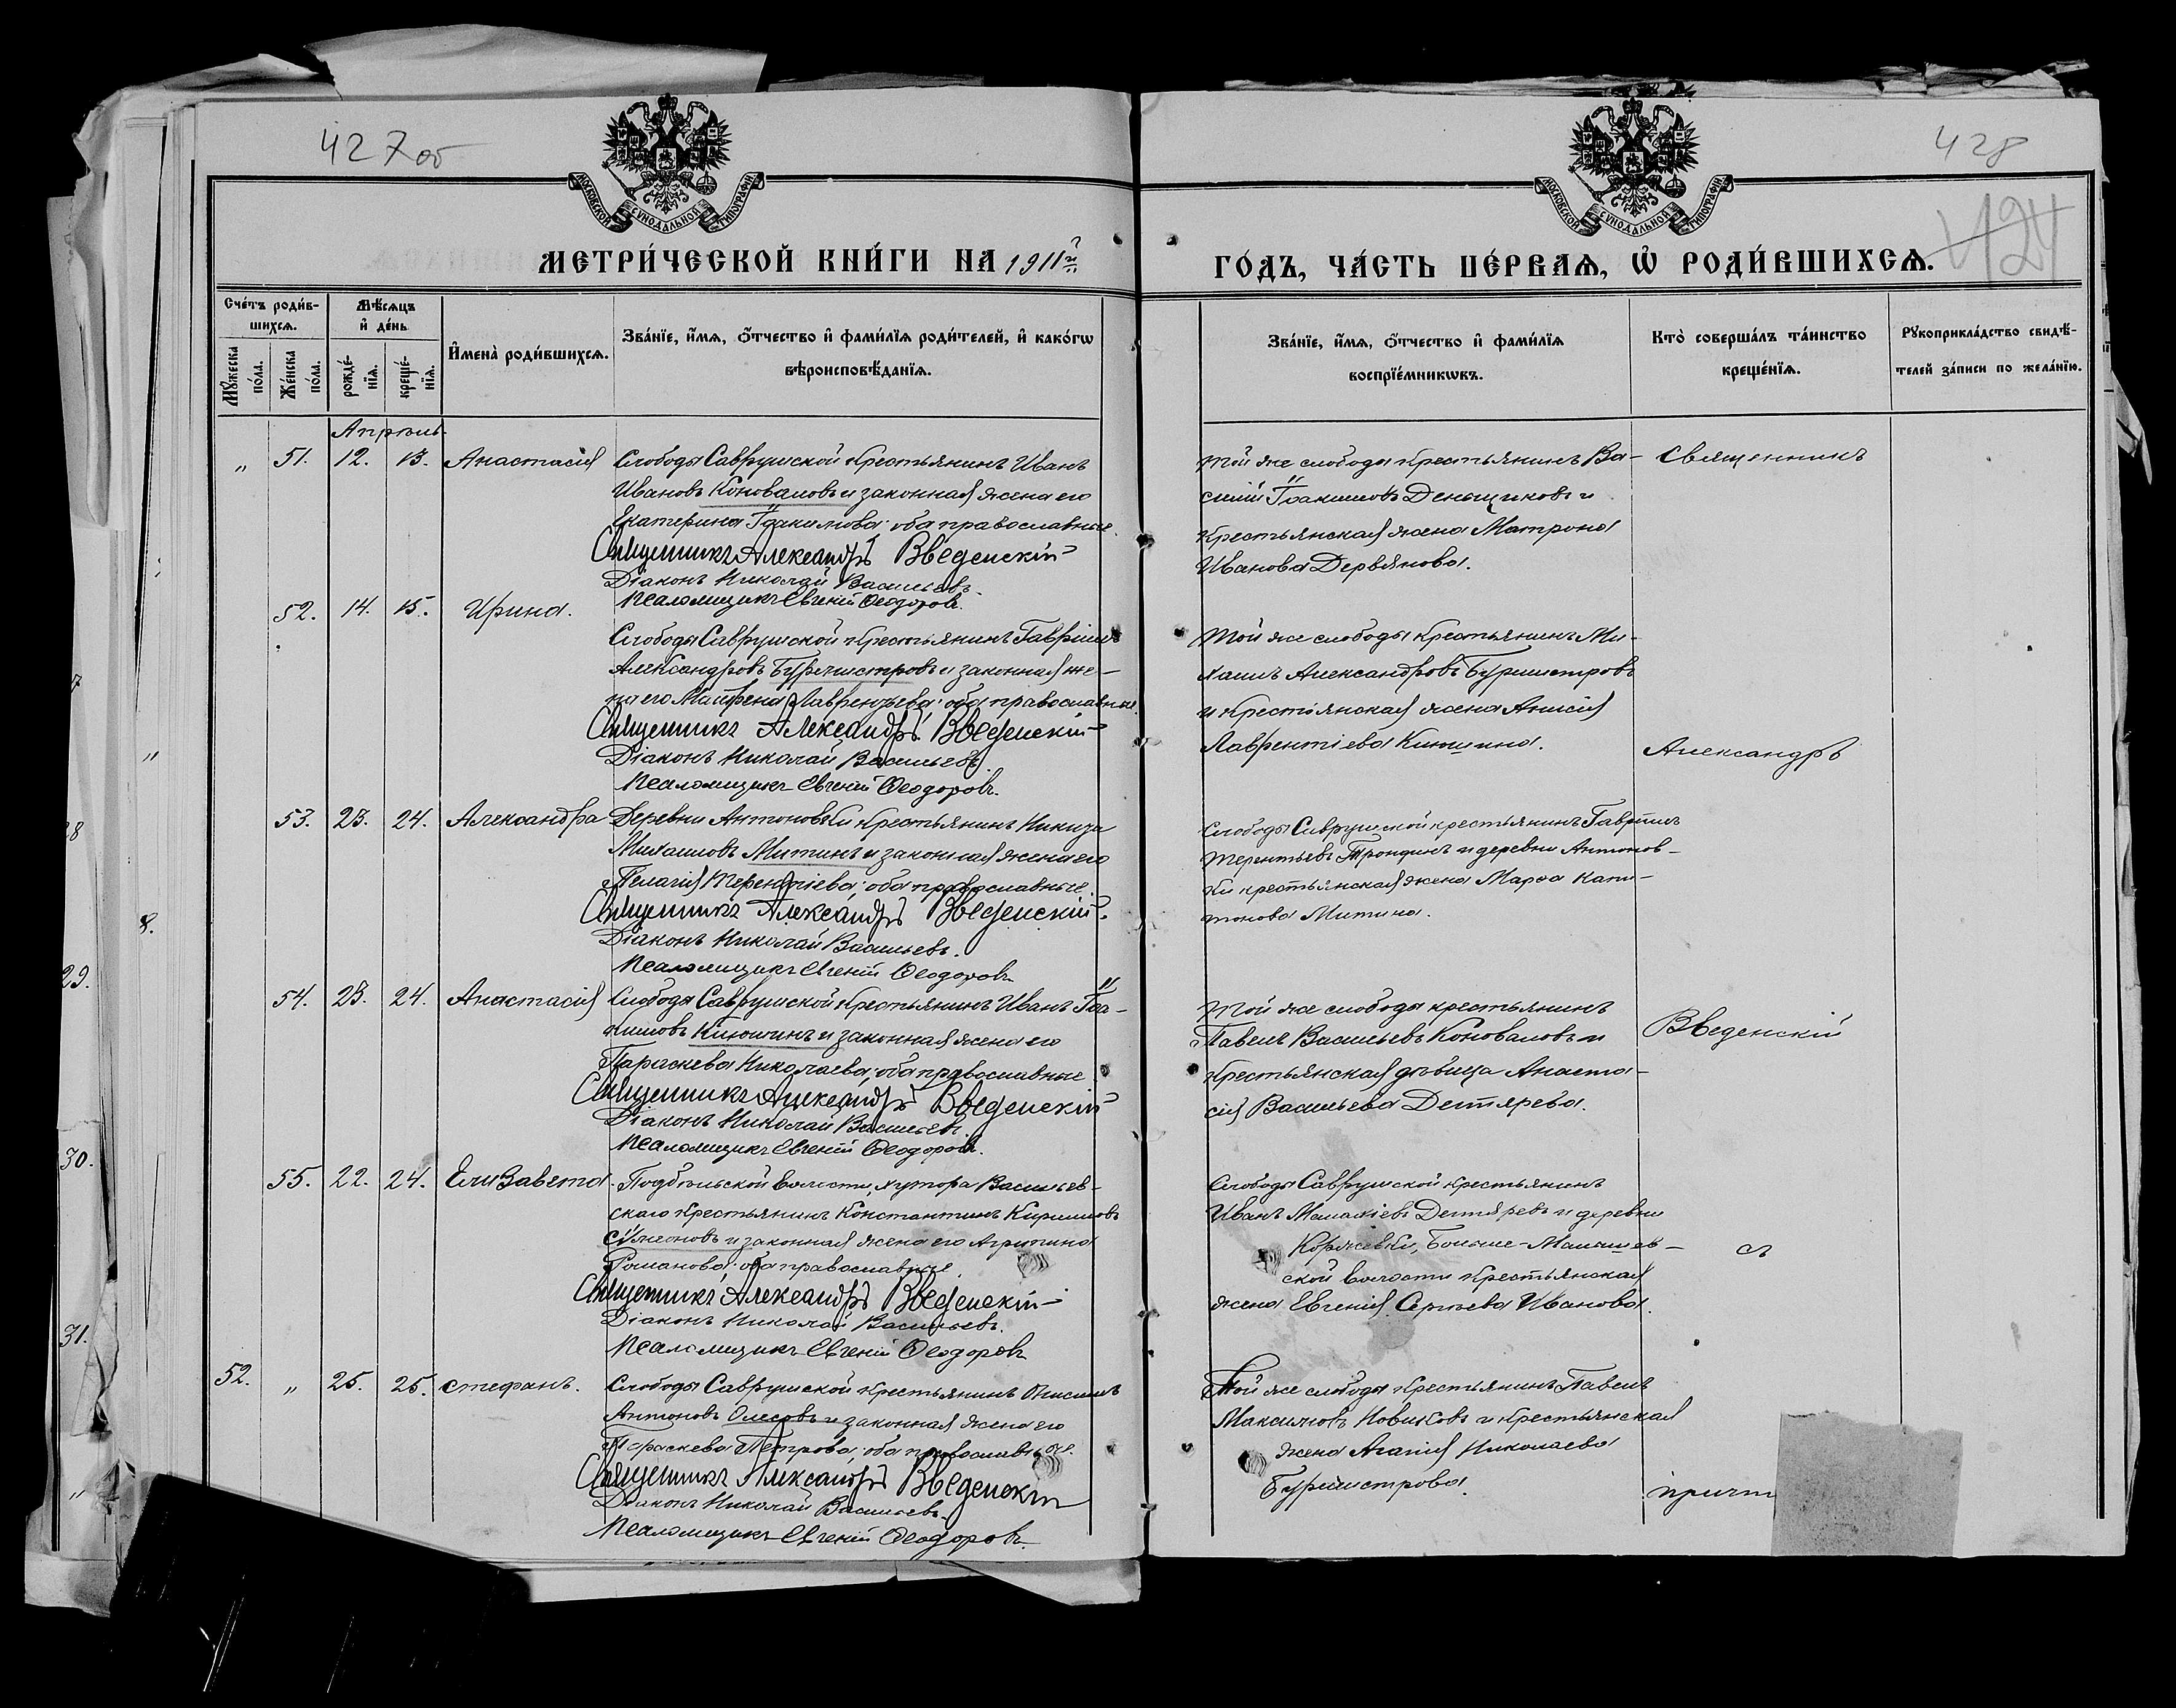 427 об
428
124
МОСКОВСКОЙ СѴНОДАЛЬНОЙ ТИПОГРАФІИ
МОСКОВСКОЙ СѴНОДАЛЬНОЙ ТИПОГРАФІИ
МЕТРИ́ЧЕСКОЙ КНИ́ГИ НА 1911й
ГО́ДЪ, ЧА́СТЬ ПЕ́РВАѦ, Ѽ РОДИ́ВШИХСѦ.
Сче́тъ роди́в-
шихсѧ.
Мѣ́сѧцъ
и҆ де́нь
Мꙋ́жеска
по́ла.
Же́нска
по́ла.
рожде́-
нїѧ.
креще́-
нїѧ.
И҆мена̀ роди́вшихсѧ.
Зва́нїе, и҆́мѧ, ѻ҆́тчество и҆ фами́лїѧ роди́телей, и҆ како́гѡ
вѣроисповѣ́данїѧ.
Зва́нїе, и҆́мѧ, ѻ҆́тчество и҆ фами́лїѧ
воспрїе́мникѡвъ.
Кто̀ соверша́лъ та́инство
креще́нїѧ.
Рꙋкоприкла́дство свидѣ́-
телей за́писи по жела́нїю.
Апрѣль.
„ 51. 12. 13. Анастасія Слободы Саврушской крестьянинъ Иванъ
Ивановъ Коноваловъ и законная жена его
Екатерина Іоакимова; оба православные.
Священникъ Александръ Введенскій
Діаконъ Николай Васильевъ.
Псаломщикъ Евгеній Ѳеодоровъ.
Той же слободы крестьянинъ Ва-
силій Іоакимовъ Деньщиковъ и
крестьянская жена Матрона
Иванова Дервянова.
Священникъ
52. 14. 15. Ирина.
Слободы Саврушской крестьянинъ Гавріилъ
Александровъ Бурмистровъ и законная же-
на его Лаврентьева; оба православные.
Священникъ Александръ Введенскій
Діаконъ Николай Васильевъ.
Псаломщикъ Евгеній Ѳеодоровъ.
Той же слободы крестьянинъ Ми-
хаилъ Александровъ Бурмистровъ
и крестьянская жена Анисія
Лаврентіева
Александръ
53. 23. 24. Александра Деревни Антоновки крестьянинъ Никита
Михаиловъ Митинъ и законная жена его
Пелагія Терентіева; оба православные.
Священникъ Александръ Введенскій
Діаконъ Николай Васильевъ.
Псаломщикъ Евгеній Ѳеодоровъ
Слободы Саврушской крестьянинъ Гавріилъ
Терентьевъ Трондинъ и деревни Антонов-
ки крестьянская жена Марѳа Капи-
тонова Митина.
54. 23. 24. Анастасія Слободы Саврушской крестьянинъ Иванъ Іоа-
кимовъ и законная жена его
Параскева Николаева; оба православные
Священникъ Александръ Введенскій
Діаконъ Николай Васильевъ.
Псаломщикъ Евгеній Ѳеодоровъ.
Той же слободы крестьянинъ
Павелъ Васильевъ Коноваловъ и
крестьянская дѣвица Анаста-
сія Васильева Дегтярева.
Введенскій
55. 22. 24. Елизавета. Подбѣльской волости, хутора Васильев-
скаго крестьянинъ Константинъ Кириловъ
Сѵмеоновъ и законная жена его Агриппина
Романова; оба православные.
Священникъ Александръ Введенскій
Діаконъ Николай Васильевъ.
Псаломщикъ Евгеній Ѳеодоровъ
Слободы Саврушской крестьянинъ
Иванъ Малахіевъ Дегтяревъ и деревни
Коржевки, Больше-Малышев-
ской волости крестьянская
жена Евгенія Сергѣева Иванова.
съ
52. „ 25. 25. Стефанъ. Слободы Саврушской крестьянинъ Онисимъ
Антоновъ и законная жена его
Параскева Петрова; оба православные.
Священникъ Александръ Введенскій
Діаконъ Николай Васильевъ.
Псаломщикъ Евгеній Ѳеодоровъ.
Той же слободы крестьянинъ Павелъ
Максимовъ Новиковъ и крестьянская
жена Агапія Николаева
Бурмистрова.
причт
8.
29.
30.
31.